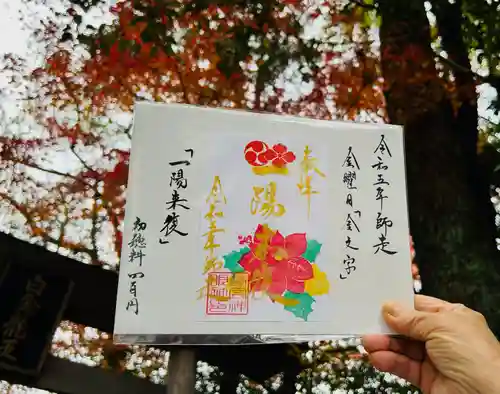 令和五年師走
金曜日「金文字」
奉拝
一陽来復
令和五年
「一陽来復」
初穂料 四百円